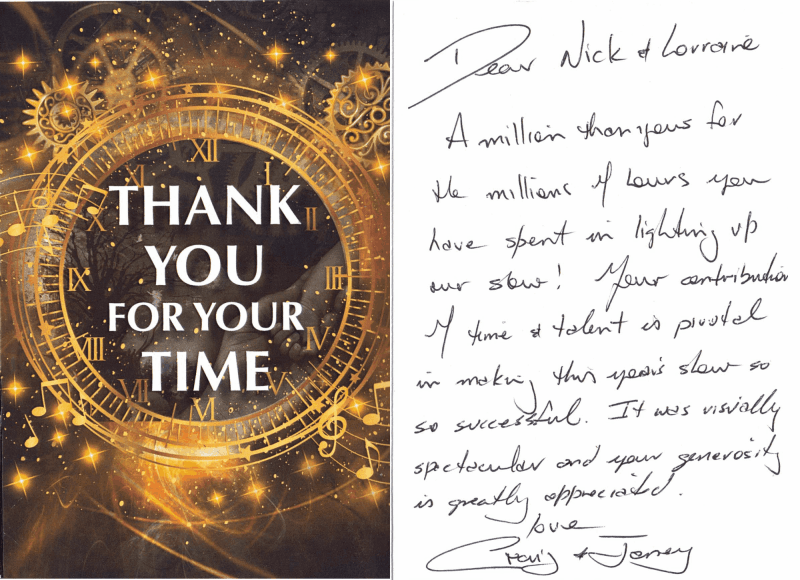 XII
XI I
THANK
X II
YOU
IX III
FOR YOUR
VIII IV
TIME
VII V
VI
Dear Nick & Lorraine
A million thanyous for
the millions of hours you
have spent in lighting up
our show! Your contribution
of time & talent is pivotal
in making this year's show so
so successful. It was visually
spectacular and your generosity
is greatly appreciated.
love
Craig &